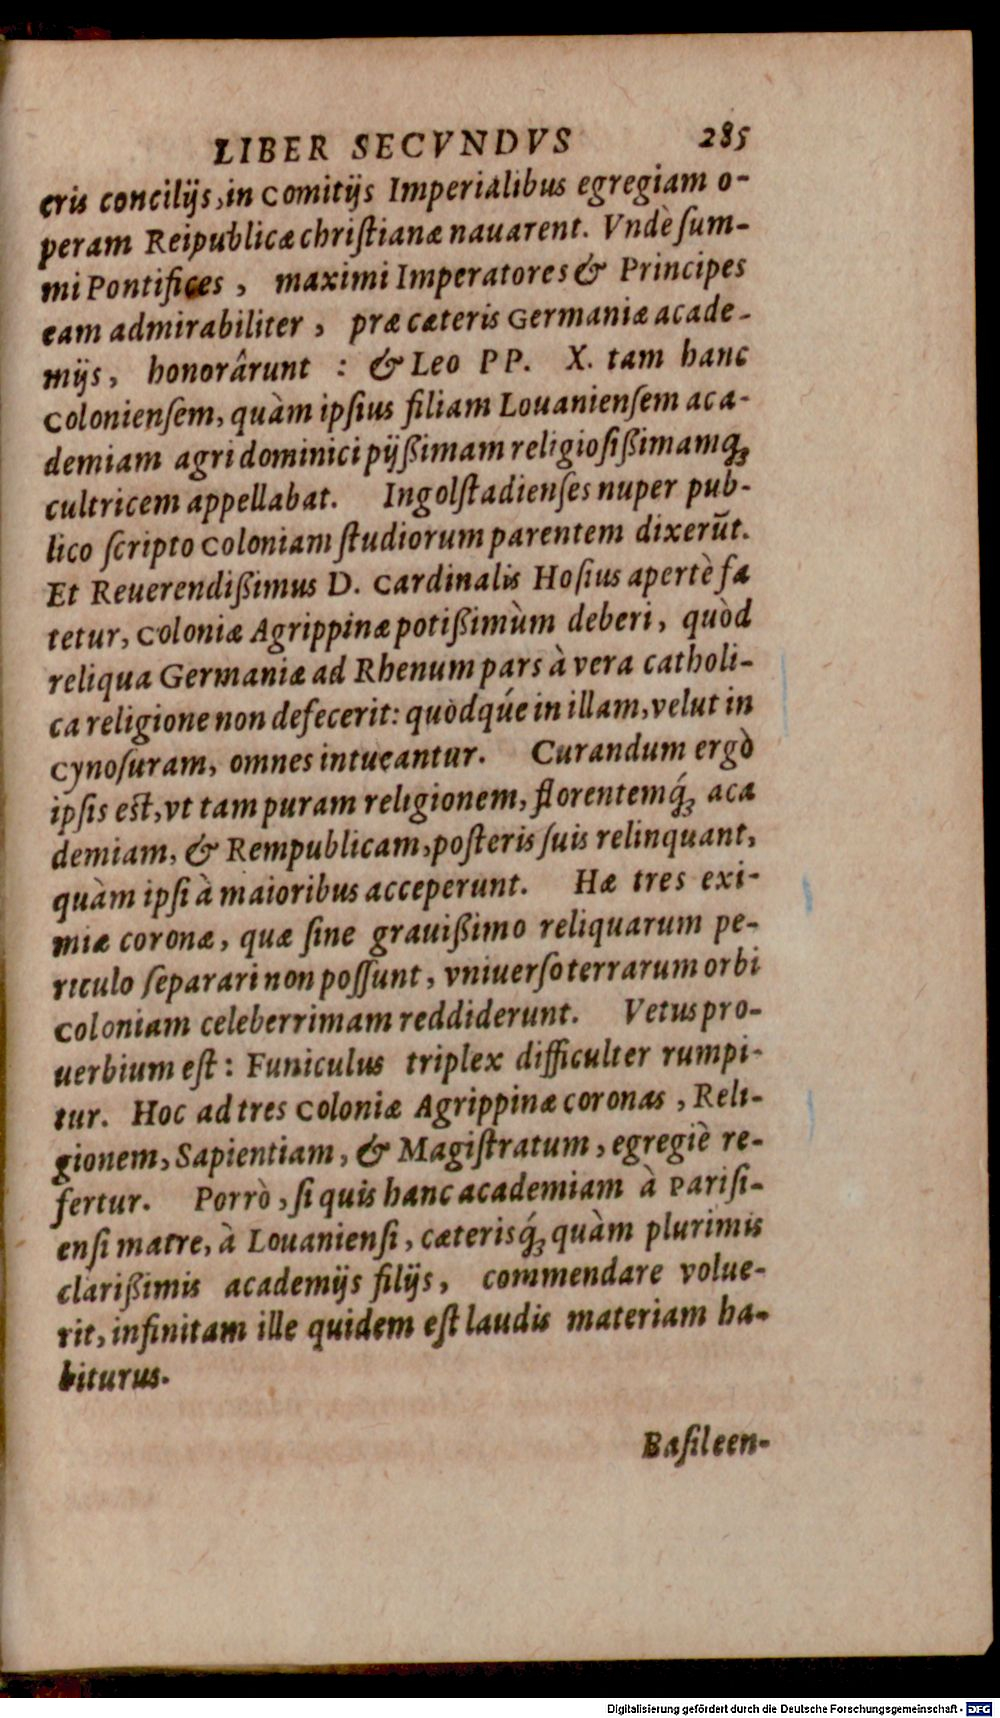 LIBER SECVNDVS 285
cris concilijs, in Comitijs Imperialibus egregiam o-
peram Reipublicæ christianæ nauarent. Vndè sum-
mi Pontifices, maximi Imperatores & Principes
eam admirabiliter, præ cæteris Germaniæ acade-
mijs, honorârunt : & Leo PP. X. tam hanc
Coloniensem, quàm ipsius filiam Louaniensem aca-
demiam agri dominici pijßimam religiosißimamq́ꝫ
cultricem appellabat. Ingolstadienses nuper pub-
lico scripto Coloniam studiorum parentem dixerūt.
Et Reuerendißimus D. Cardinalis Hosius apertè fa
tetur, Coloniæ Agrippinæ potißimùm deberi, quòd
reliqua Germaniæ ad Rhenum pars à vera catholi-
ca religione non defecerit: quòdqúe in illam, velut in
Cynosuram, omnes intueantur. Curandum ergò
ipsis est, vt tam puram religionem, florentemq́ꝫ aca
demiam, & Rempublicam, posteris suis relinquant,
quàm ipsi à maioribus acceperunt. Hæ tres exi-
miæ coronæ, quæ sine grauißimo reliquarum pe-
riculo separari non possunt, vniuerso terrarum orbi
Coloniam celeberrimam reddiderunt. Vetus pro-
uerbium est : Funiculus triplex difficulter rumpi-
tur. Hoc ad tres Coloniæ Agrippinæ coronas, Reli-
gionem, Sapientiam, & Magistratum, egregiè re-
fertur. Porrò, si quis hanc academiam à Parisi-
ensi matre, à Louaniensi, cæterisq́ꝫ quàm plurimis
clarißimis academijs filijs, commendare volue-
rit, infinitam ille quidem est laudis materiam ha-
biturus.
Basileen-
Digitalisierung gefördert durch die Deutsche Forschungsgemeinschaft - DFG